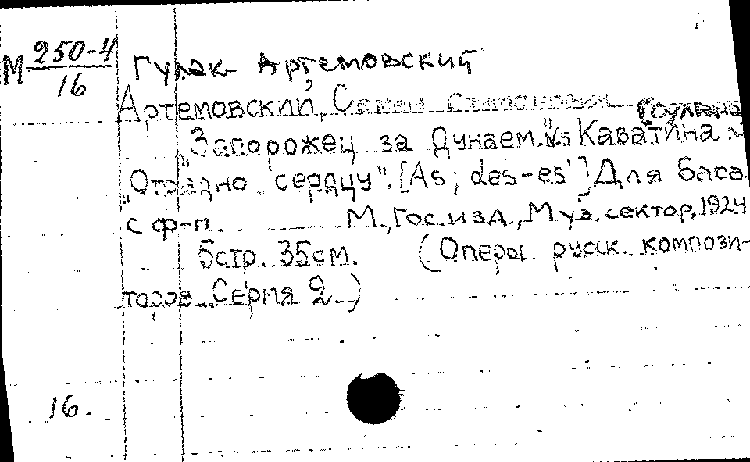 М 250-4
16
Гулак-Артемовский
Артемовский, Семен Степанович
"Запорожец за Дунаем". Каватина
"Отрадно сердцу". [As; des-es'] Для баса
с ф-п. М., Гос. изд., Муз. сектор, 1924
5 стр. 35 см. (Оперы русск. компози-
торов. Серия 2.)
16.